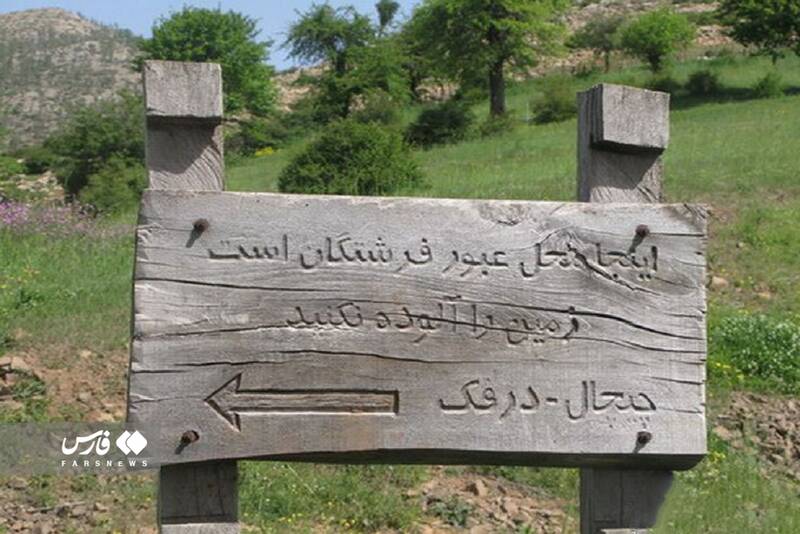 اینجا محل عبور فرشتگان است
زمین را آلوده نکنید
چیچال - درفک
فارس
FARSNEWS